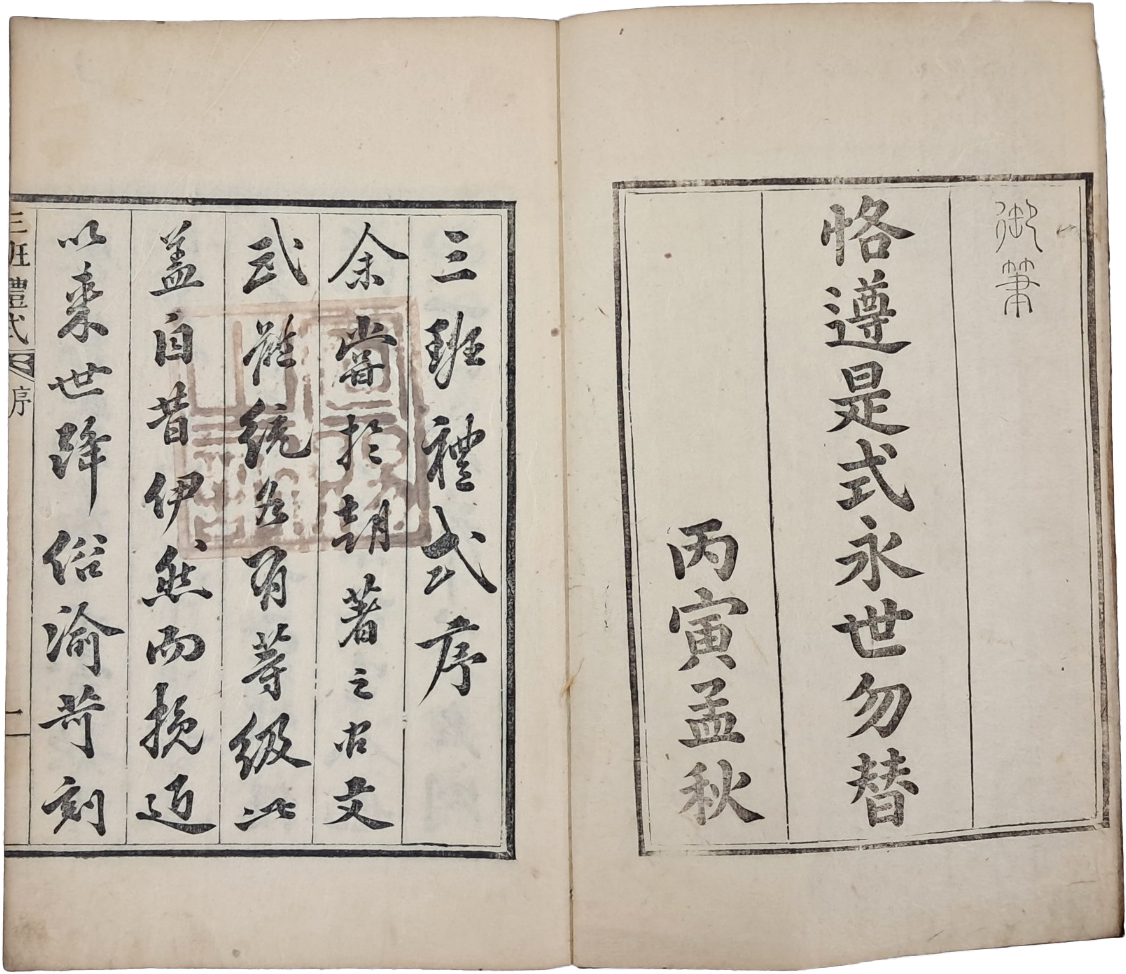 御筆
恪遵是式永世勿替
丙寅孟秋
三班禮式序
余甞於朝著之文
武雖統各有等級此
蓋自昔伊然而挽近
以來世降俗渝苛刻
三班禮式 序 一